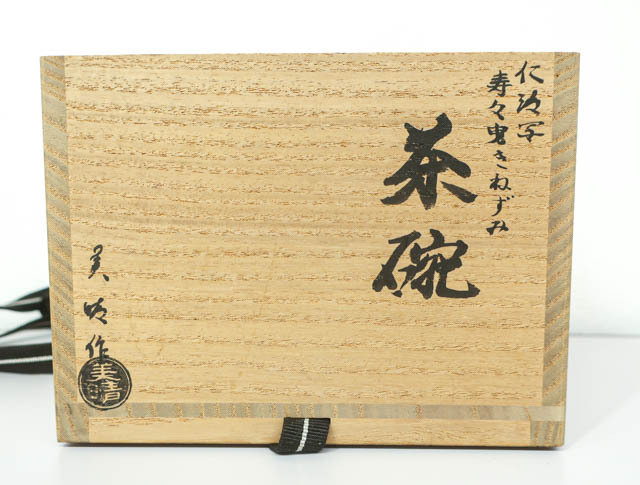 仁清写
寿々曳きねずみ
茶碗
美晴作
美晴